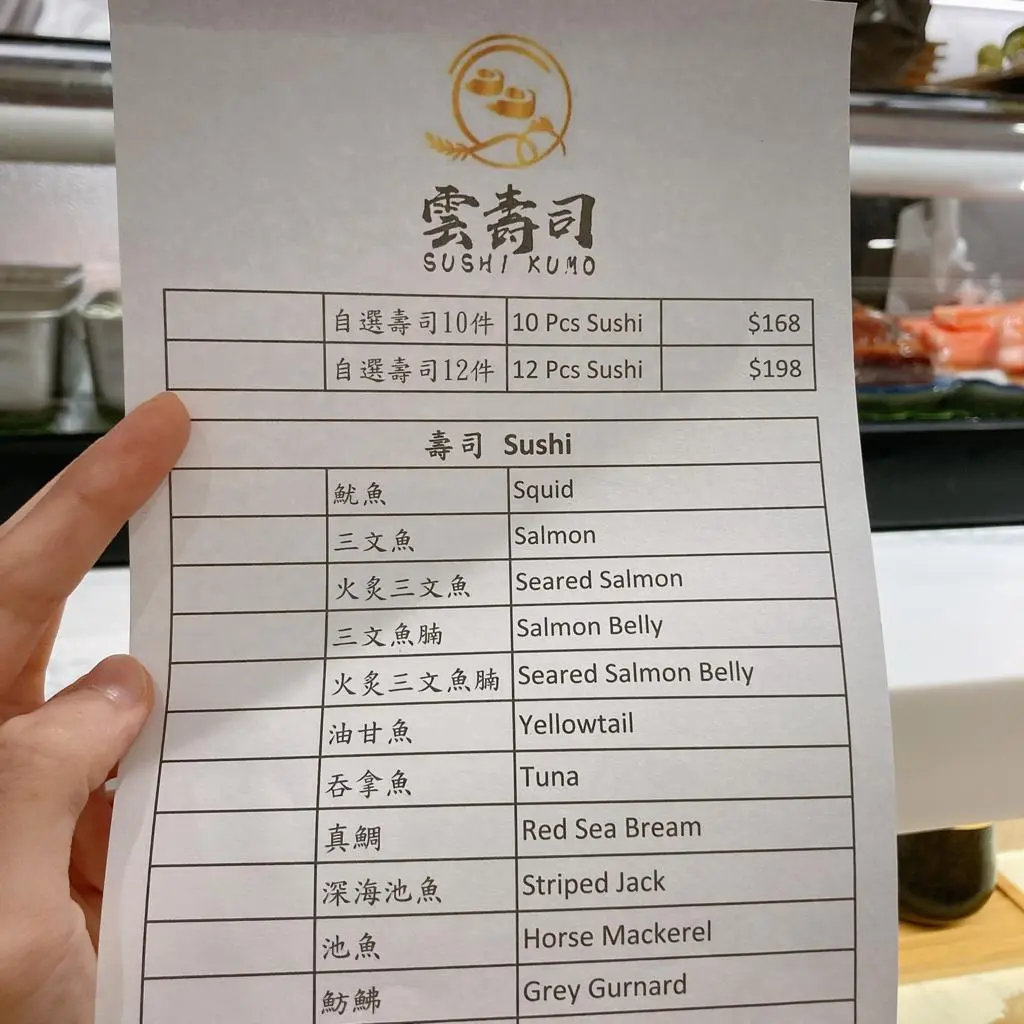 雲壽司
SUSHI KUMO
自選壽司10件 10 Pcs Sushi $168
自選壽司12件 12 Pcs Sushi $198
壽司 Sushi
魷魚 Squid
三文魚 Salmon
火炙三文魚 Seared Salmon
三文魚腩 Salmon Belly
火炙三文魚腩 Seared Salmon Belly
油甘魚 Yellowtail
吞拿魚 Tuna
真鯛 Red Sea Bream
深海池魚 Striped Jack
池魚 Horse Mackerel
魴鮄 Grey Gurnard